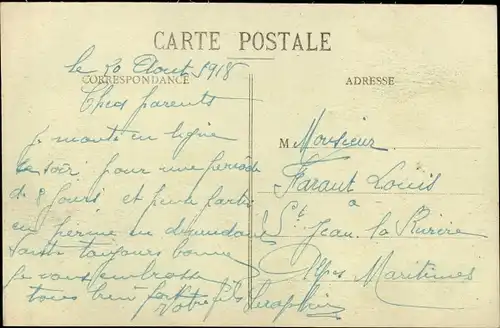 CARTE POSTALE
le 20 Aout 1918
CORRESPONDANCE
ADRESSE
Chers parents
je monte en ligne
ce soir pour une période
de 8 jours et puis partir
en perme
Santé toujours bonne
Je vous embrasse
tous bien fort
Votre fils Seraphin
M Monsieur
Faraut Louis
a
St Jean la Rivière
Alpes Maritimes